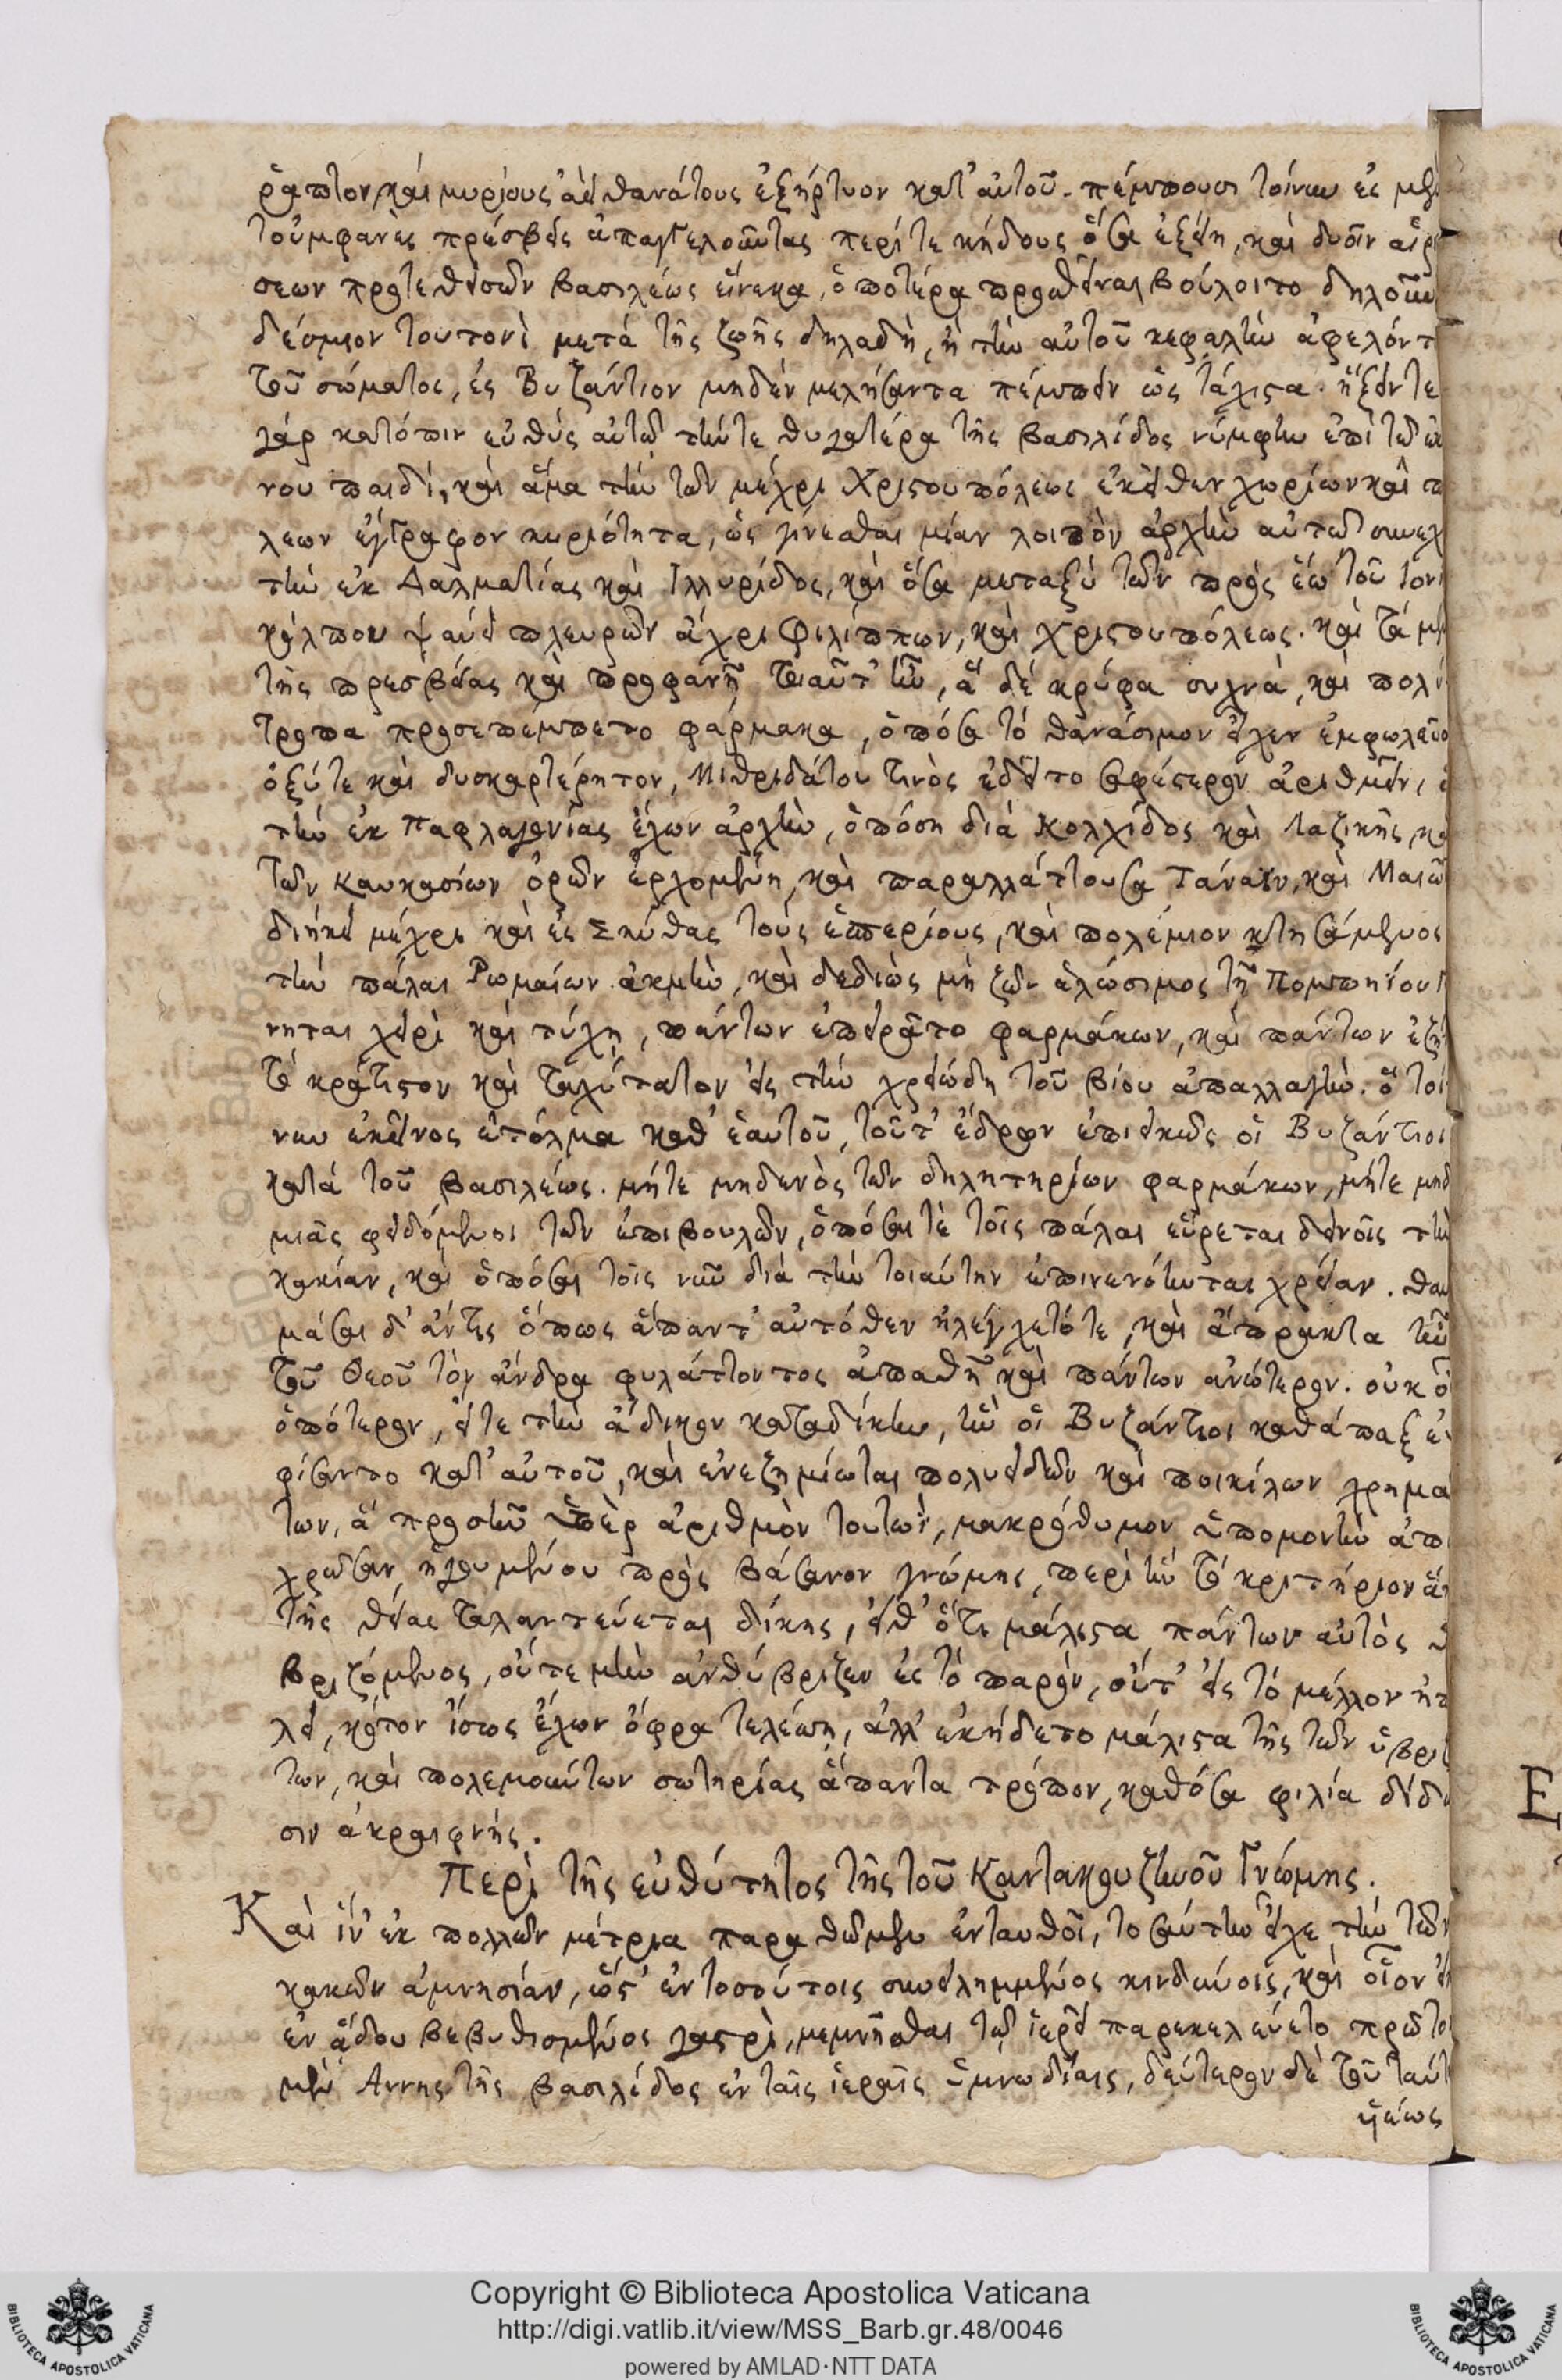 ῥαπτον, καὶ μυρίους ἀεὶ θανάτους ἐξήρτυον κατ' αὐτοῦ. πέμπουσι τοίνυν ἐς μὲν
τοὐμφανὲς πρέσβεις ἀπαγγελοῦντας περί τε κήδους ὅσα ἐξείη, καὶ δυοῖν αἱρέ
σεων προτεθεισῶν βασιλέως εἵνεκα, ὁποτέρα προσθεῖναι βούλοιτο δηλοῦν
δέσμιον τουτονὶ μετὰ τῆς ζωῆς δηλαδὴ, ἢ τὴν αὐτοῦ κεφαλὴν ἀφελόντα
τοῦ σώματος, ἐς Βυζάντιον μηδὲν μελήσαντα πέμπειν ὡς τάχιστα. ἥξειν τε
γὰρ κατόπιν εὐθὺς αὐτῷ τήν τε θυγατέρα τῆς βασιλίδος νύμφην ἐπὶ τῷ ἐκεί
νου παιδὶ, καὶ ἅμα τὴν τῶν μέχρι Χριστουπόλεως ἐκεῖθεν χωρίων καὶ πό
λεων ἔγγραφον κυριότητα, ὡς γίνεσθαι μίαν λοιπὸν ἀρχὴν αὐτῷ συνεχῆ
τὴν ἐκ Δαλματίας καὶ Ἰλλυρίδος, καὶ ὅσα μεταξὺ τῶν πρὸς ἕω τοῦ Ἰονίου
κόλπου ψαύει πλευρῶν ἄχρι Φιλίππων, καὶ Χριστουπόλεως. καὶ τὰ μὲν
τῆς πρεσβείας καὶ προφανῆ τοιαῦτ' ἦν, ἃ δὲ κρύφα συχνὰ, καὶ πολύ
τροπα προσεπέμπετο φάρμακα, ὁπόσα τὸ θανάσιμον εἶχεν ἐμφωλεῦον
ὀξύ τε καὶ δυσκαρτέρητον, Μιθριδάτου τινὸς ἐδεῖτο σαφέστερον ἀριθμεῖν, ὃς
τὴν ἐκ Παφλαγονίας ἔχων ἀρχὴν, ὁπόση διὰ Κολχίδος καὶ Λαζικῆς, καὶ
τῶν Καυκασίων ὀρῶν ἐρχομένη, καὶ παραλλάττουσα Τάναϊν, καὶ Μαιῶτιν
διήκει μέχρι καὶ ἐς Σκύθας τοὺς ἑσπερίους, καὶ πολέμιον κτησάμενος
τὴν πάλαι Ῥωμαίων ἀκμὴν, καὶ δεδιὼς μὴ ζῶν ἁλώσιμος τῇ Πομπηΐου γέ
νηται χειρὶ καὶ τύχῃ, πάντων ἐπειρᾶτο φαρμάκων, καὶ πάντων ἐζήτει
τὸ κράτιστον καὶ ταχύτατον εἰς τὴν χρειώδη τοῦ βίου ἀπαλλαγὴν. ὃ τοί
νυν ἐκεῖνος ἐτόλμα καθ' ἑαυτοῦ, τοῦτ' ἔδρων ἐπιεικῶς οἱ Βυζάντιοι
κατὰ τοῦ βασιλέως. μήτε μηδενὸς τῶν δηλητηρίων φαρμάκων, μήτε μηδε
μιᾶς φειδόμενοι τῶν ἐπιβουλῶν, ὁπόσαι τὲ τοῖς πάλαι εὕρεται δεινοῖς τὴν
κακίαν, καὶ ὁπόσαι τοῖς νῦν διὰ τὴν τοιαύτην ἐπινενόηνται χρείαν. θαυ
μάσαι δ' ἄν τις ὅπως ἅπαντ' αὐτόθεν ἠλέγχετό τε, καὶ ἄπρακτα ἦν
τοῦ Θεοῦ τὸν ἄνδρα φυλάττοντος ἀπαθῆ καὶ πάντων ἀνώτερον. οὐκ οἶδ'
ὁπότερον, εἴτε τὴν ἄδικον καταδίκην, ἣν οἱ Βυζάντιοι καθάπαξ ἐψη
φίσαντο κατ' αὐτοῦ, καὶ ἐνεζημίωται πολυειδῶν καὶ ποικίλων χρημά
των, ἃ προσῆν ὑπὲρ ἀριθμὸν τουτωῒ, μακρόθυμον ὑπομονὴν ἀπο
χρῶσαν ἡγουμένου πρὸς βάσανον γνώμης, περὶ ἣν τὸ κριτήριον ἅπαν
τῆς θείας ταλαντεύεται δίκης, εἴθ' ὅτι μάλιστα πάντων αὐτὸς ὑ
βριζόμενος, οὔτε μὴν ἀνθύβριζεν ἐς τὸ παρὸν, οὔτ' εἰς τὸ μέλλον ἠπεί
λει, κότον ἴσως ἔχων ὄφρα τελέσῃ, ἀλλ' ἐκήδετο μάλιστα τῆς τῶν ὑβριζόν
των, καὶ πολεμούντων σωτηρίας ἅπαντα τρόπον, καθόσα φιλία δίδω
σιν ἀκραιφνής.
Περὶ τῆς εὐθύτητος τῆς τοῦ Καντακουζηνοῦ Γνώμης.
Καὶ ἵν' ἐκ πολλῶν μέτρια παραθῶμεν ἐνταυθοῖ, τοσαύτην εἶχε τὴν τῶν
κακῶν ἀμνησίαν, ὥστ' ἐν τοσούτοις συνειλημμένος κινδύνοις, καὶ οἷον εἰ
ἐν ᾅδου βεβυθισμένος γαστρὶ, μεμνῆσθαι τῷ ἱερεῖ παρεκελεύετο πρῶτον
μὲν Ἄννης τῆς βασιλίδος ἐν ταῖς ἱεραῖς ὑμνῳδίαις, δεύτερον δὲ τοῦ ταύτης
υἱέως
Copyright © Biblioteca Apostolica Vaticana
http://digi.vatlib.it/view/MSS_Barb.gr.48/0046
powered by AMLAD·NTT DATA
BIBLIOTECA APOSTOLICA VATICANA
BIBLIOTECA APOSTOLICA VATICANA